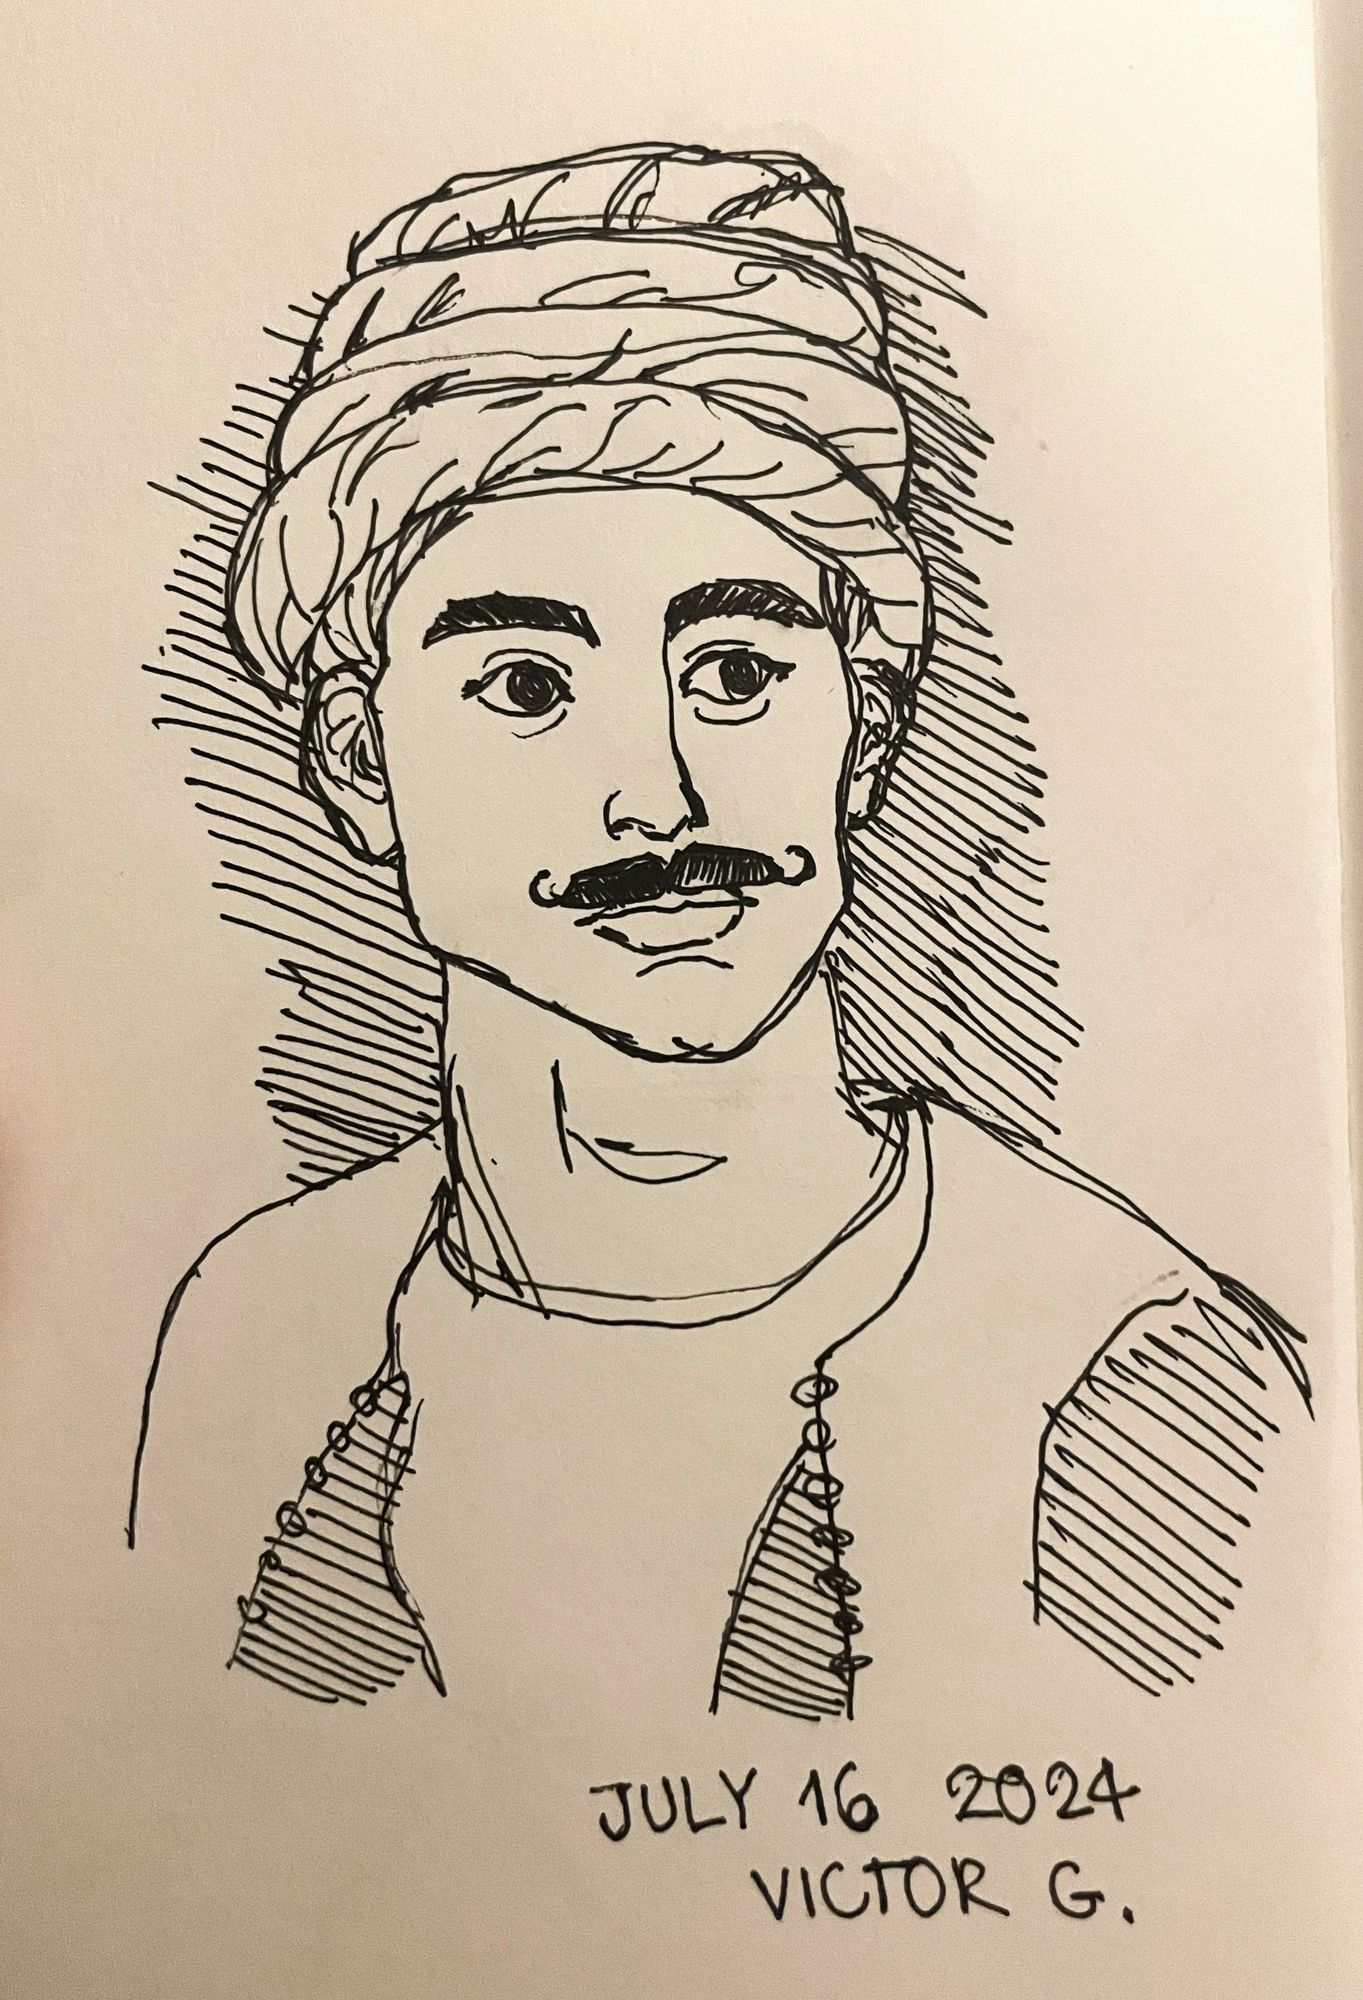 JULY 16 2024
VICTOR G.